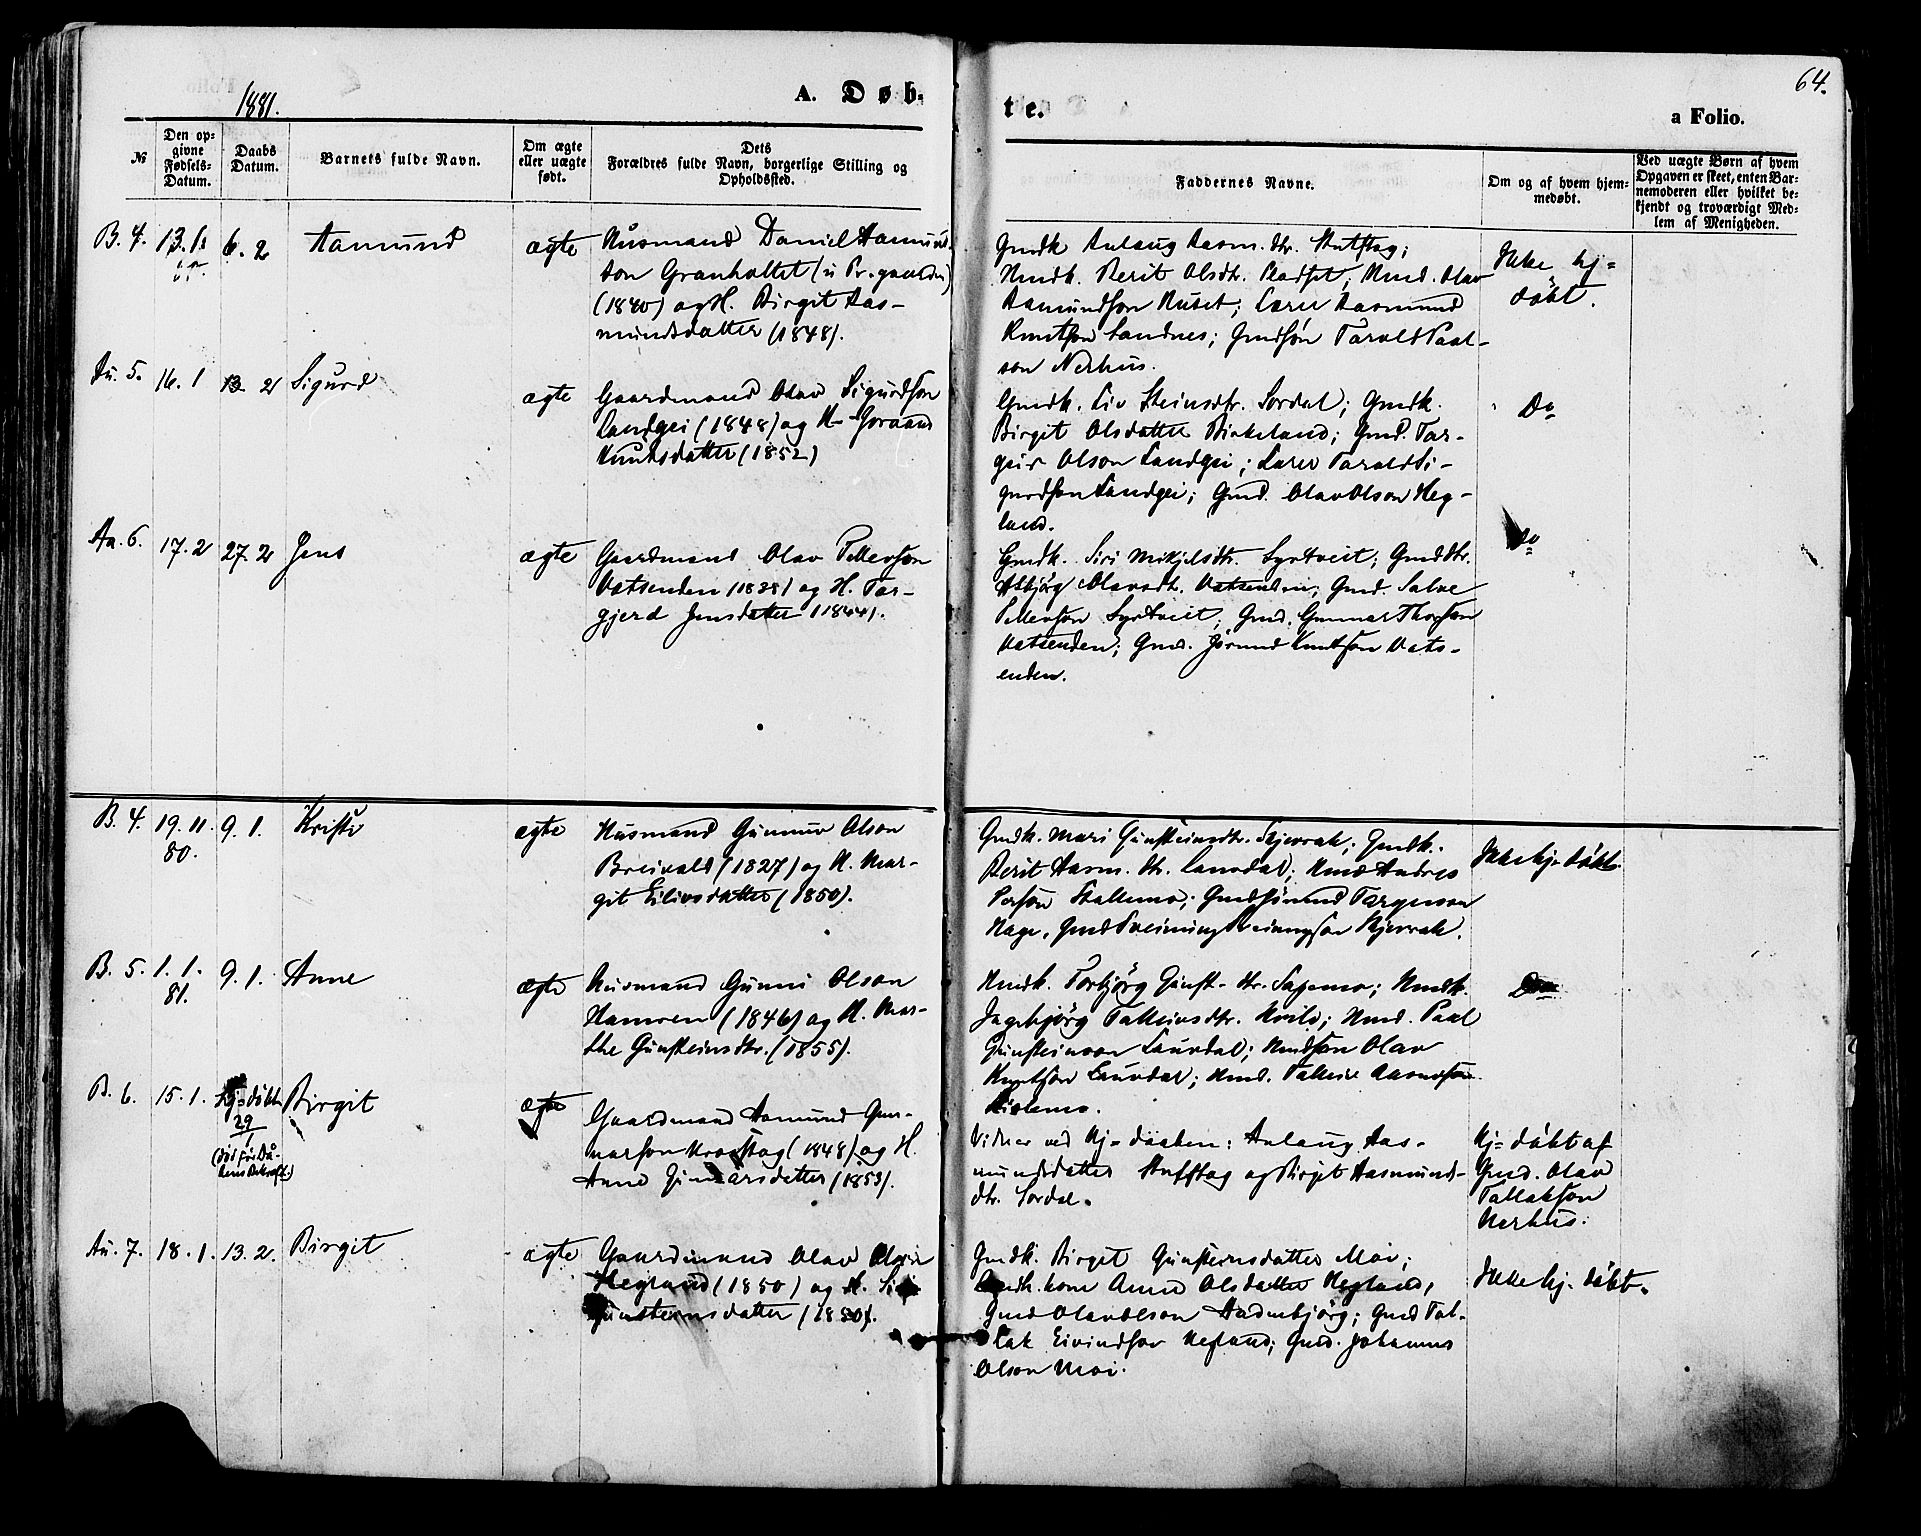 64.
1881.
A. Døb-
te.
a Folio.
№
Den op-
givne
Fødsels-
Datum.
Daabs
Datum.
Barnets fulde Navn.
Om ægte
eller uægte
født.
Dets
Forældres fulde Navn, borgerlige Stilling og
Opholdssted.
Faddernes Navne.
Om og af hvem hjem-
medøbt.
Ved uægte Børn af hvem
Opgaven er skeet, enten Bar-
nemoderen eller hvilket be-
kjendt og troværdigt Med-
lem af Menigheden.
B. 4. 13.1. 6. 2 Aamund ægte
Husmand Daniel Aamunds-
son Granholtet (u Pr.gaarden)
(1840) og H. Birgit Aas-
mundsdatter (1848).
Gmdk Anlaug Aasm. dtr. Stutstag;
Hmdk. Berit Olsdtr. Hmd. Olav
Aamundson Huset; Lærer Aasmund
Knutson Landnes; Gmdsøn Tarald Paal-
son Nerhus.
Ikke hj=
døbt.
Au. 5. 16. 1 13. 2 Sigurd ægte
Gaardmand Olav Sigurdson
Landgei (1848) og H. Goraand
Knutsdatter (1852)
Gmdk. Liv Steinsdtr. Lordal; Gmdk.
Birgit Olsdatter Birkeland; Gmd. Tar-
geir Olson Landgei; Lærer Tarald Si-
gurdson Landgei; Gmd. Olav Olson Heg-
land.
Do
Au. 6. 17. 2 27. 2 Jens ægte
Gaardmand Olav Tellevson
Vatsenden (1838) og H. Tar-
gjerd Jensdatter (1844).
Gmdk. Siri Mikjelsdtr. Syrtveit; Gmddtr.
Asbjørg Olavsdt. Vatsenden; Gmd. Salve
Tellevson Syrtveit; Gmd. Gunnar Thorson
Vatsenden; Gmd. Jørund Knutson Vats-
enden.
Do
B. 4. 19. 11. 9. 1. Kristi ægte
80.
Husmand Gunnuv Olson
Breivold (1827) og H. Mar-
git Eilivsdatter (1850).
Gmdk. Mari Gunsteinsdtr. Kjevrak; Gmdk.
Berit Aasm. dtr. Lauvdal; Hmd Andres
Person Stallemo; Gmd Targuson
Hage, Gmd Sveinung Sveinungson Kjevrak.
Ikke hj-døbt
B. 5. 1. 1. 9. 1. Anne ægte
81.
Husmand Gunni Olson
Hamren (1846) og H. Mar-
the Gunsteinsdtr. (1855).
Hmdk. Torbjörg Gunst. dtr. Hmdk.
Ingebjörg Talleivsdtr. Hmd. Paal
Gunsteinson Lauvdal; Hmdson Olav
Knutson Lauvdal; Hmd. Talleiv Aasmdson
Do
B. 6. 15. 1. hj-døbt Birgit ægte
29
1
(død før Daa-
bens Bekræft.)
Gaardmand Aamund Gun-
narson Kraastag (1848) og H.
Anne Gunnarsdatter (1853).
Vidner ved Hj-daaben: Anlaug Aas-
mundsdatter Stutstag og Birgit Aasmunds-
dtr. Lordal.
Hj= døbt af
Gmd. Olav
Tallakson
Nerhus.
Au. 7. 18. 1. 13. 2. Birgit ægte
Gaardmand Olav Olson
Hegland (1850) og H. Siri
Gunsteinsdatter (1850).
Gmdk. Birgit Gunsteinsdatter Moi;
Gmdk. kone Anne Olsdatter Hegland,
Gmd Olav Olson Aadnebjörg; Gmd Tal-
lak Eivindson Hegland; Gmd. Johannes
Olson Moi.
Ikke hj-døbt.